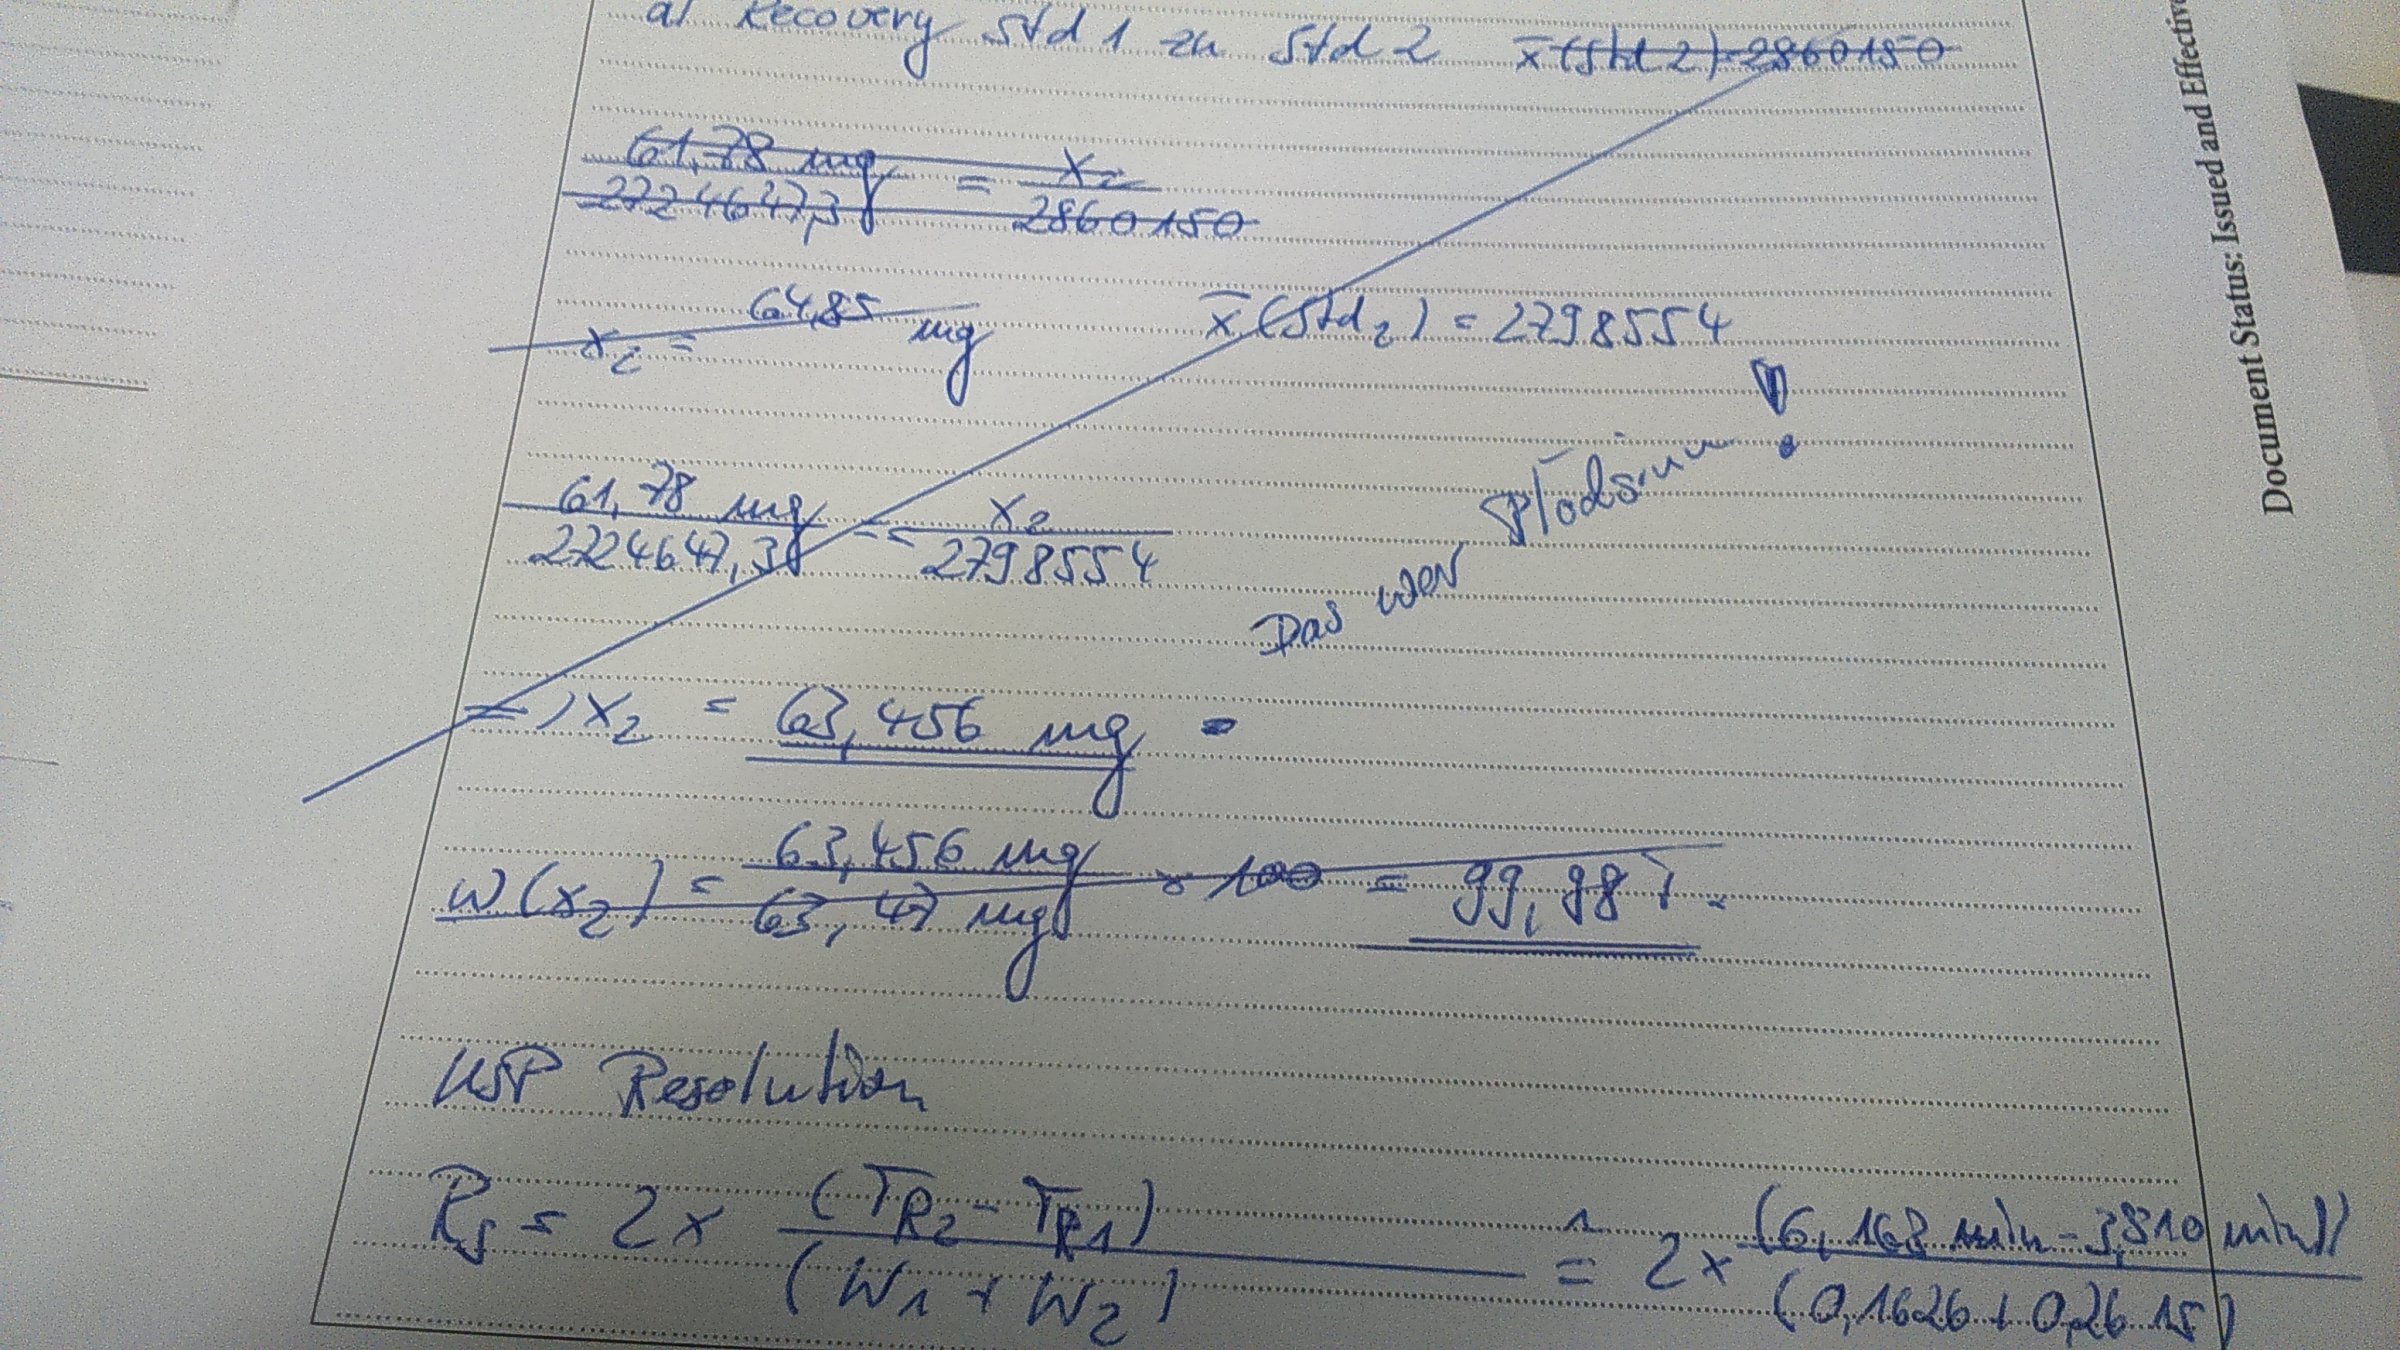 a) Recovery Std 1 zu Std 2 x̄ (Std 2) = 2860150
61,78 mg / 2724647,3 = x₂ / 2860150
x₂ = 64,85 mg
x̄ (Std₂) = 2798554
61,78 mg / 2724647,3 = x₂ / 2798554
Das war Plödsinn!
=> x₂ = 63,456 mg
w(x₂) = 63,456 mg / 63,47 mg × 100 = 99,98 %
USP Resolution
Rs = 2 × (TR2 - TR1) / (W1 + W2) ≙ 2 × (6,168 min - 3,810 min) / (0,1626 + 0,2615)
Document Status: Issued and Effective